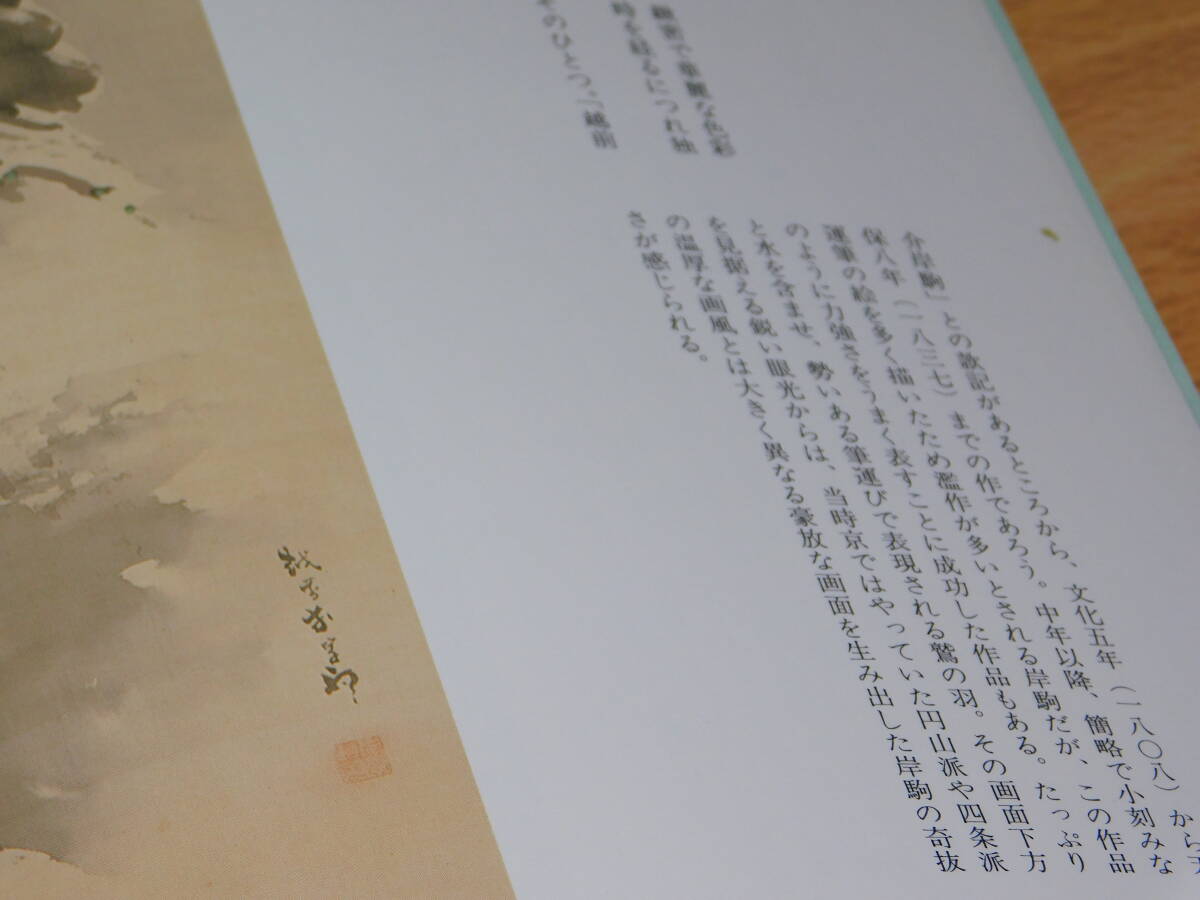 緻密で華麗な色彩
時を経るにつれ独
そのひとつ。「越前
介岸駒」との款記があるところから、文化五年（一八〇八）から天
保八年（一八三七）までの作であろう。中年以降、簡略で小刻みな
運筆の絵を多く描いたため濫作が多いとされる岸駒だが、この作品
のように力強さをうまく表すことに成功した作品もある。たっぷり
と水を含ませ、勢いある筆運びで表現される鷲の羽。その画面下方
を見据える鋭い眼光からは、当時京ではやっていた円山派や四条派
の温厚な画風とは大きく異なる豪放な画面を生み出した岸駒の奇抜
さが感じられる。